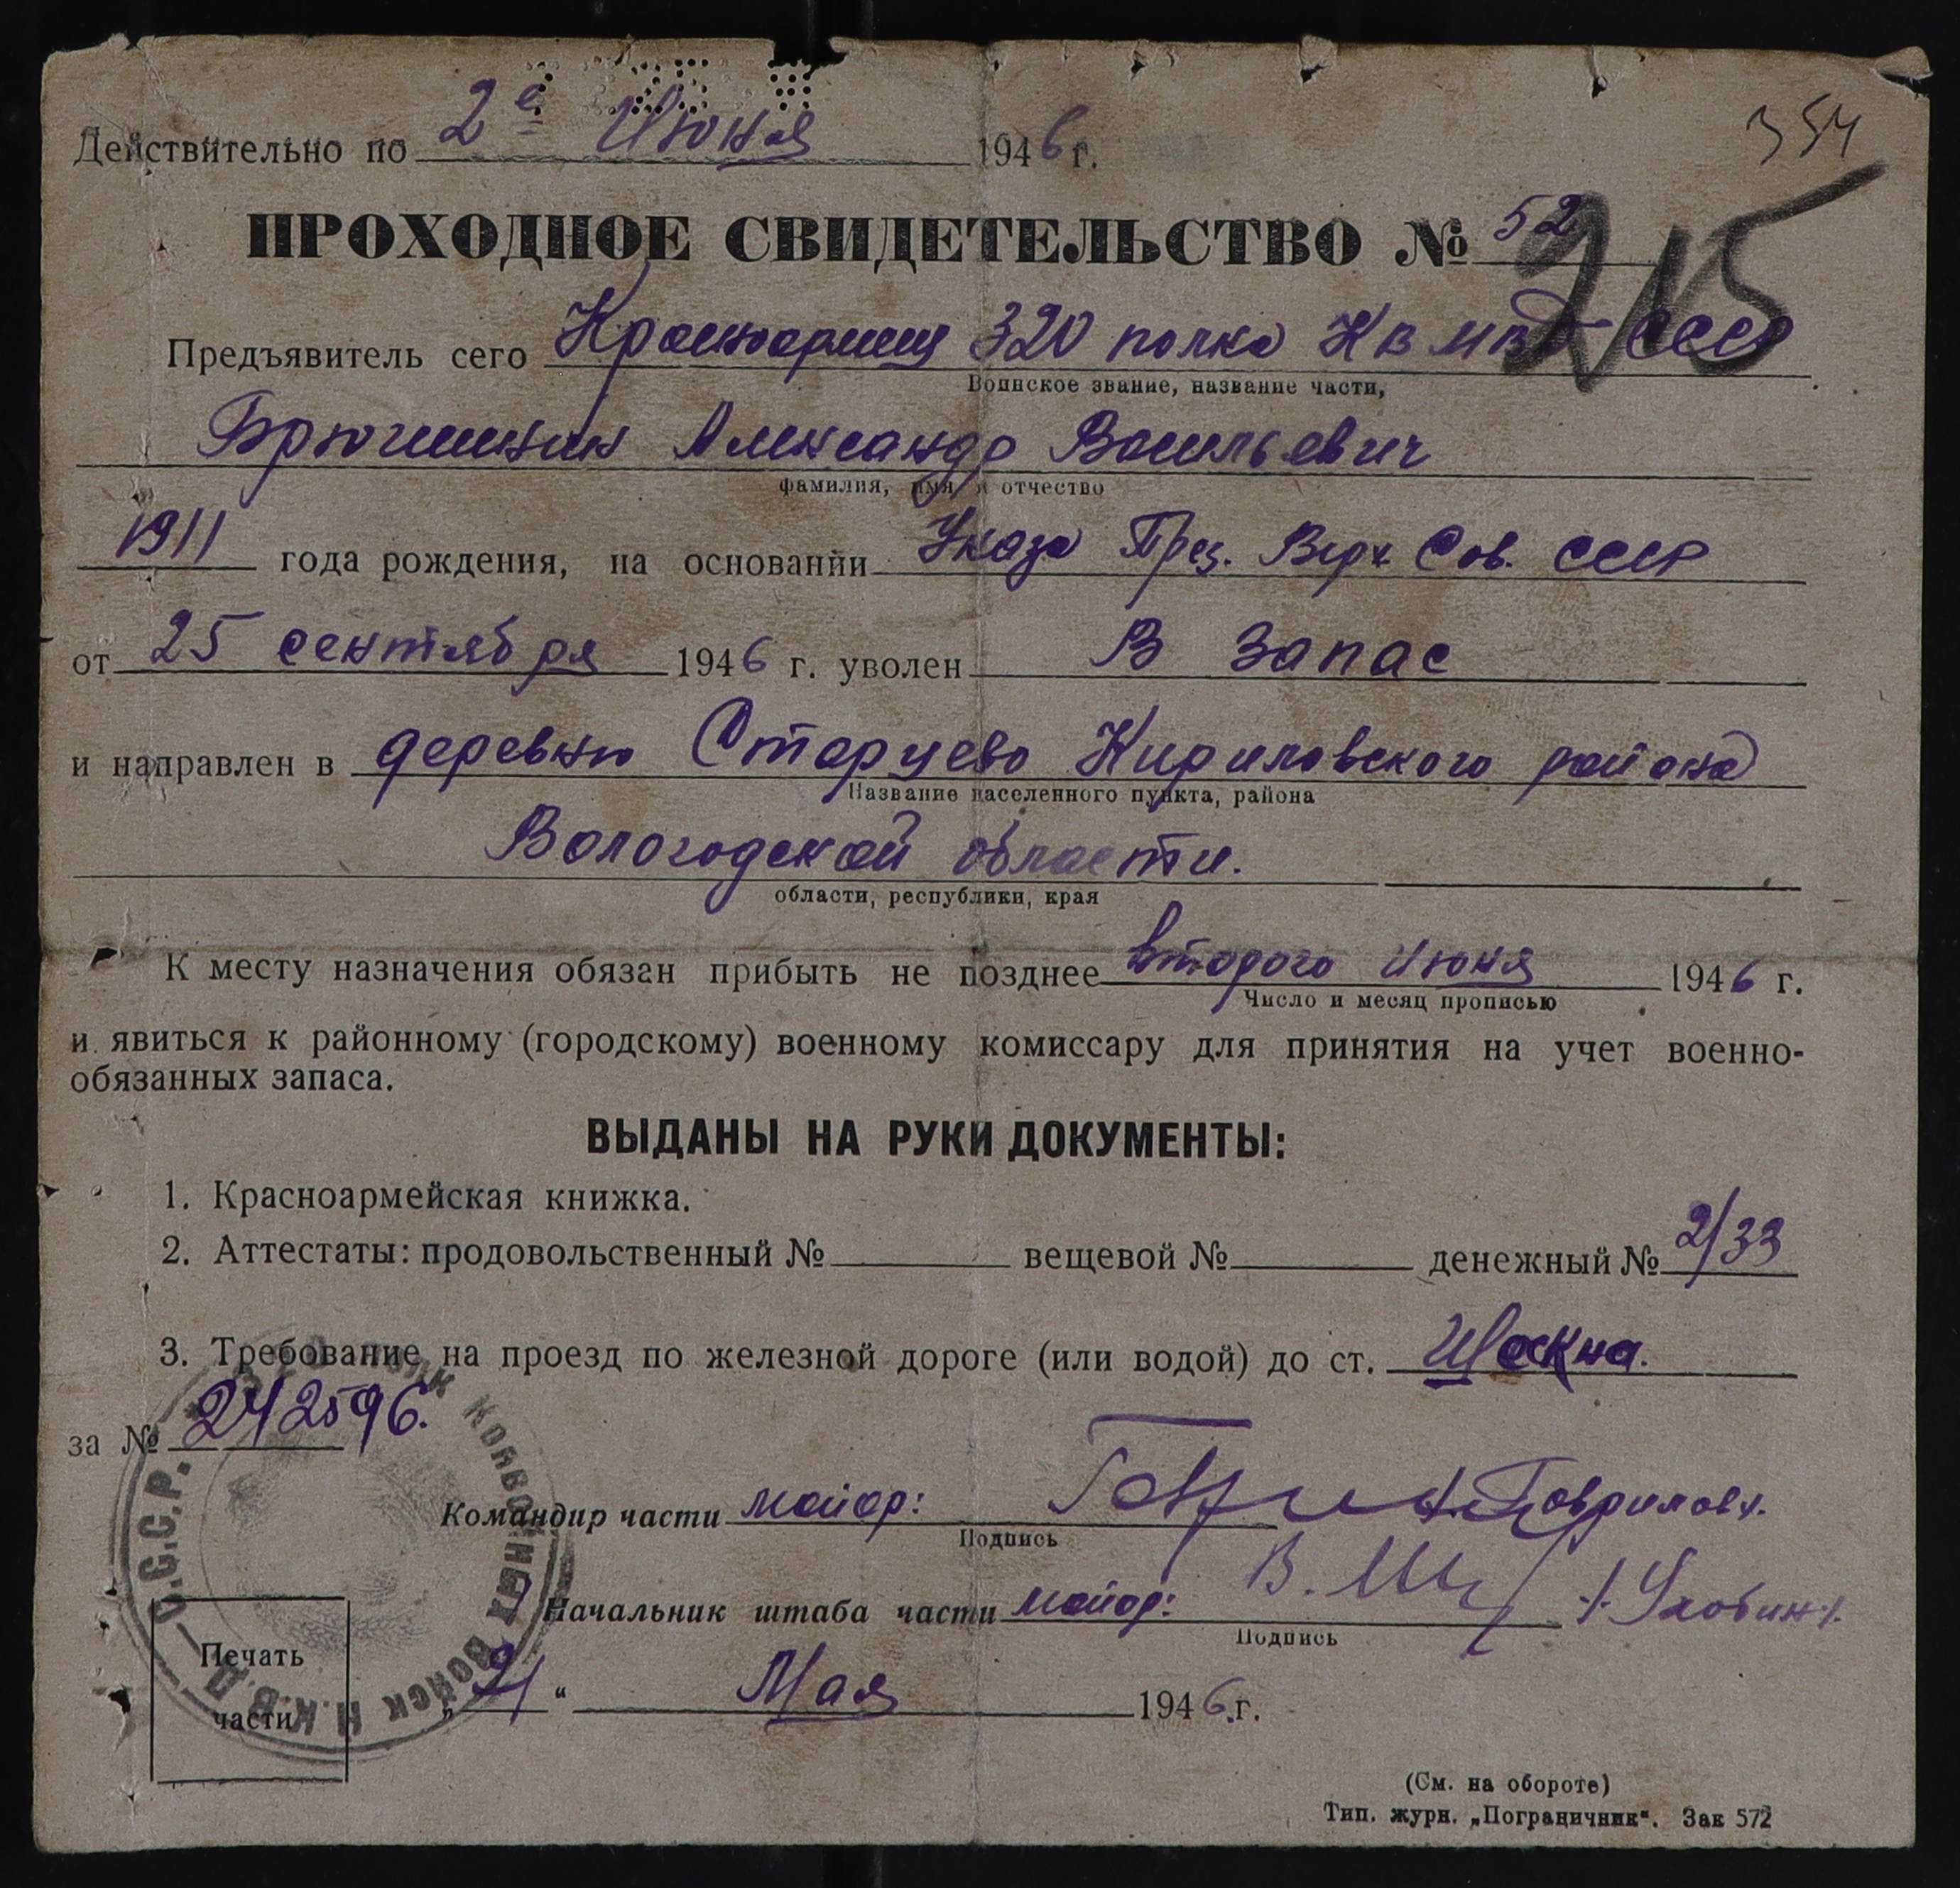 354
Действительно по 2е Июня 1946 г.
ПРОХОДНОЕ СВИДЕТЕЛЬСТВО № 52
215
Предъявитель сего Красноармеец 320 полка КВ МВД СССР
Воинское звание, название части,
Брюгинин Александр Васильевич
фамилия, имя и отчество
1911 года рождения, на основании Указа През. Верх Сов. СССР
от 25 сентября 1946 г. уволен В запас
и направлен в деревню Старцево Кириловского района
Название населенного пункта, района
Вологодской области.
области, республики, края
К месту назначения обязан прибыть не позднее второго июня 1946 г.
Число и месяц прописью
и явиться к районному (городскому) военному комиссару для принятия на учет военно-
обязанных запаса.
ВЫДАНЫ НА РУКИ ДОКУМЕНТЫ:
1. Красноармейская книжка.
2. Аттестаты: продовольственный № вещевой № денежный № 2/33
3. Требование на проезд по железной дороге (или водой) до ст. Шескна.
за № 242596.
Командир части майор: /Гаврилов/.
Подпись
Начальник штаба части майор: /Уховин/.
Подпись
Печать
части
„21“ Мая 1946 г.
полк Конвойных Войск Н.К.В.Д. — С.С.С.Р.
(См. на обороте)
Тип. журн. „Пограничник“. Зак 572